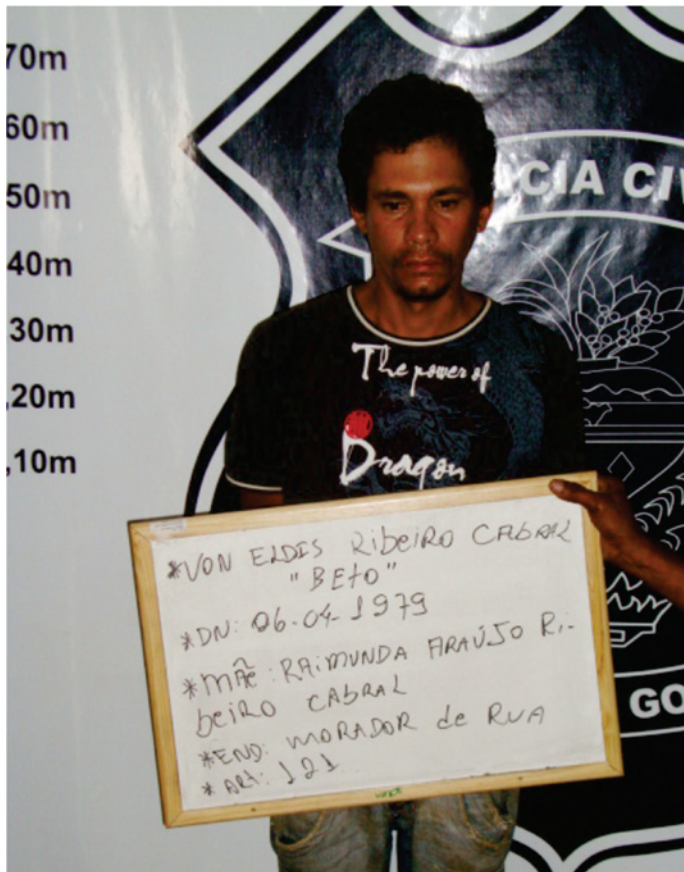 70m
60m
50m
40m
30m
,20m
,10m
CIA CIV
GO
The power of
Dragon
*VON ELDIS RibeiRO CABRAL
"BETO"
*DN: 06-04-1979
*MÃE: RAIMUNDA ARAÚJO Ri-
beiRO CABRAL
*END: MORADOR de RUA
*ART: 121